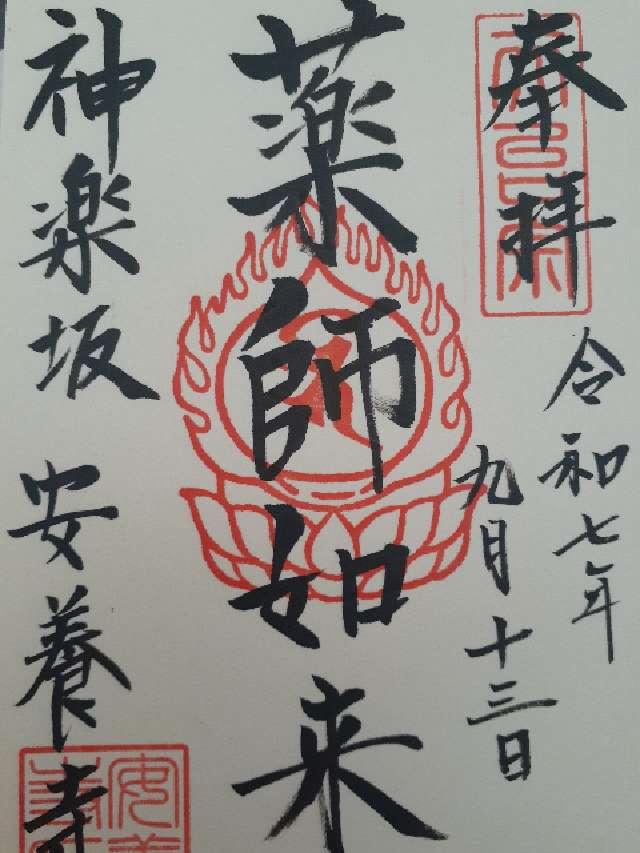 奉拝
令和七年
九月十三日
薬師如来
神楽坂 安養寺